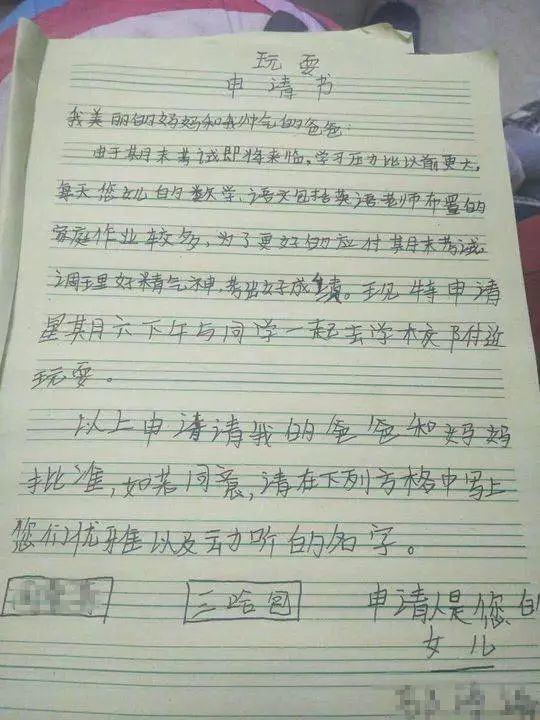 玩耍
申请书
我美丽的妈妈和我帅气的爸爸:
由于期末考试即将来临,学习压力比以前更大,
每天您女儿的数学、语文包括英语老师布置的
家庭作业较多,为了更好的应付期末考试,
调理好精气神,考出好成绩。现特申请
星期六下午与同学一起去学校附近
玩耍。
以上申请请我的爸爸和妈妈
批准,如若同意,请在下列方格中写上
您们优雅以及动听的名字。
三哈包 申请人是您的
女儿